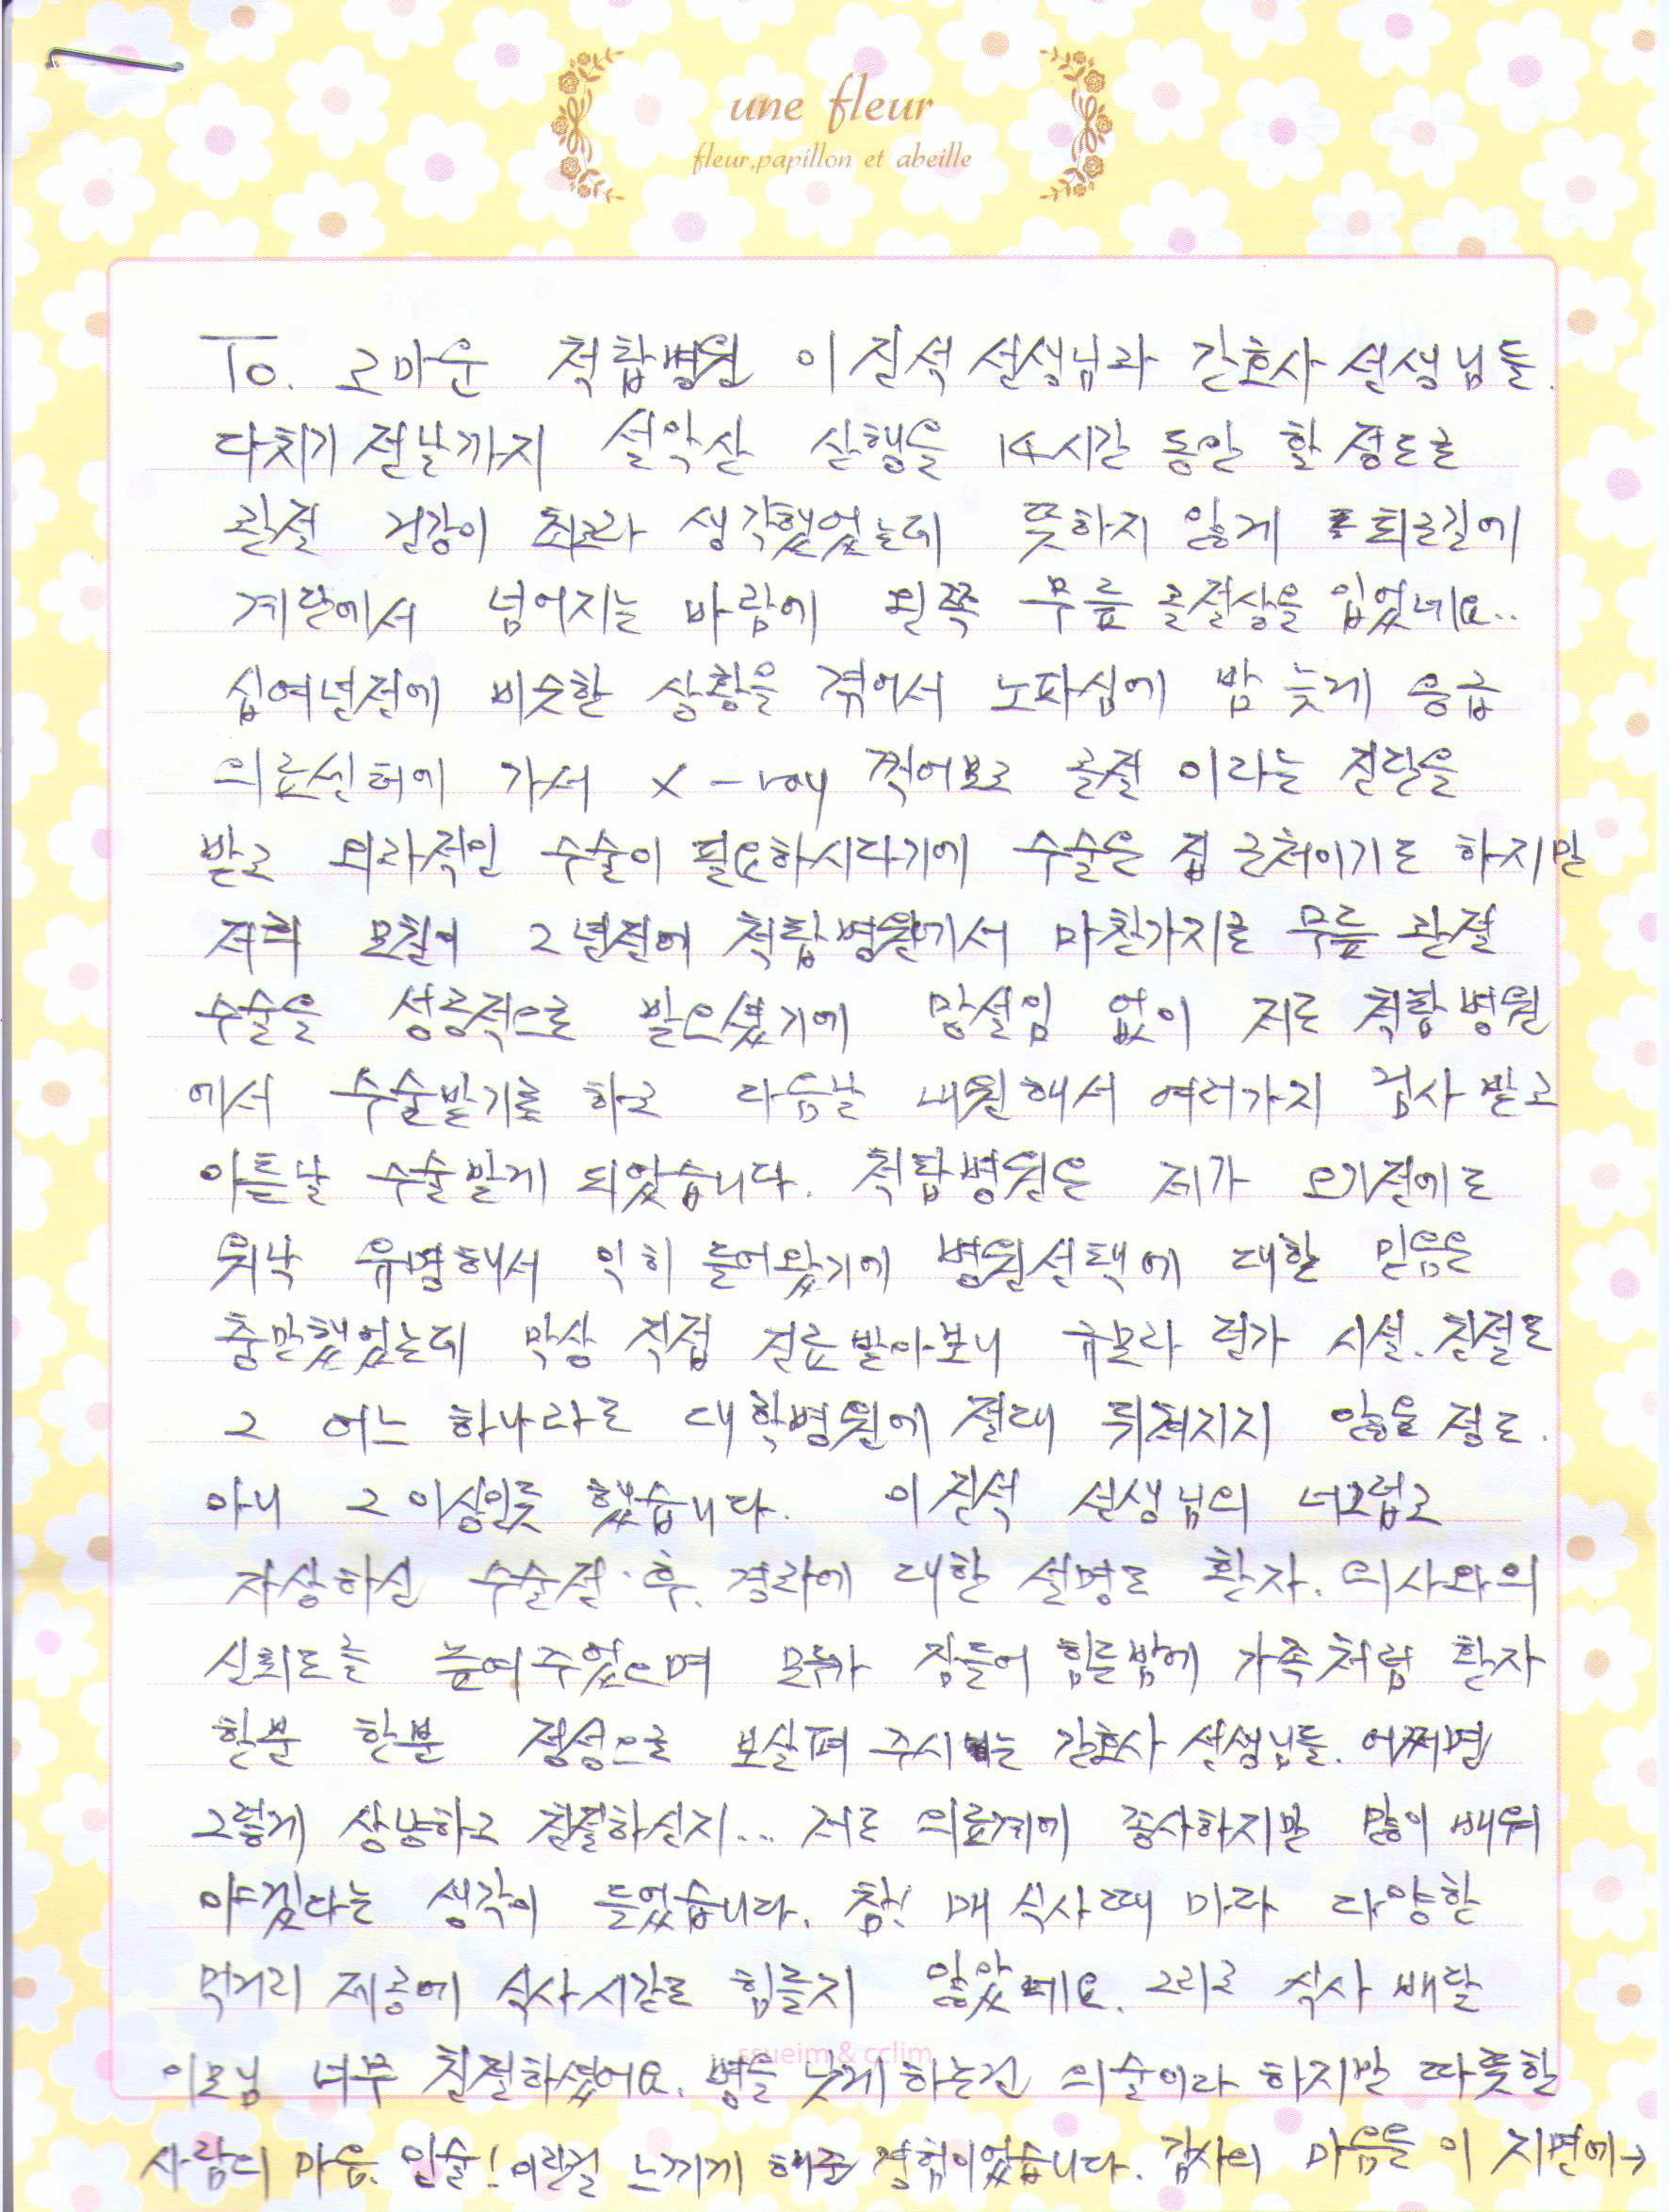 une fleur
fleur,papillon et abeille
To. 고마운 척탑병원 이진석 선생님과 간호사 선생님들.
다치기 전날까지 설악산 산행을 14시간 동안 할 정도로
관절 건강이 최고라 생각했었는데 뜻하지 않게 퇴근길에
계단에서 넘어지는 바람에 왼쪽 무릎 골절상을 입었네요..
십여년전에 비슷한 상황을 겪어서 노파심에 밤 늦게 응급
의료센터에 가서 x-ray 찍어보고 골절 이라는 진단을
받고 외과적인 수술이 필요하시다기에 수술은 집 근처이기도 하지만
저희 모친이 2년전에 척탑병원에서 마찬가지로 무릎 관절
수술을 성공적으로 받으셨기에 망설임 없이 저도 척탑병원
에서 수술받기로 하고 다음날 내원해서 여러가지 검사받고
이튿날 수술받게 되었습니다. 척탑병원은 제가 오기전에도
워낙 유명해서 익히 들어왔기에 병원선택에 대한 믿음은
충만했었는데 막상 직접 진료받아보니 규모라 던가 시설. 친절도
그 어느 하나라도 대학병원에 절대 뒤쳐지지 않을 정도.
아니 그 이상인듯 했습니다. 이진석 선생님의 너그럽고
자상하신 수술전·후. 결과에 대한 설명도 환자. 의사와의
신뢰도를 높여주었으며 모두가 잠들어 힘든밤에 가족처럼 환자
한분 한분 정성으로 보살펴 주시는 간호사 선생님들. 어쩌면
그렇게 상냥하고 친절하신지... 저도 의료계에 종사하지만 많이 배워
야겠다는 생각이 들었습니다. 참! 매 식사때 마다 다양한
먹거리 제공에 식사시간도 힘들지 않았네요. 그리고 식사 배달
ssueim & cclim
이모님 너무 친절하셨어요. 병을 낫게하는건 의술이라 하지만 따뜻한
사람의 마음. 인술! 이란걸 느끼게 해준 경험이었습니다. 감사의 마음을 이 지면에→